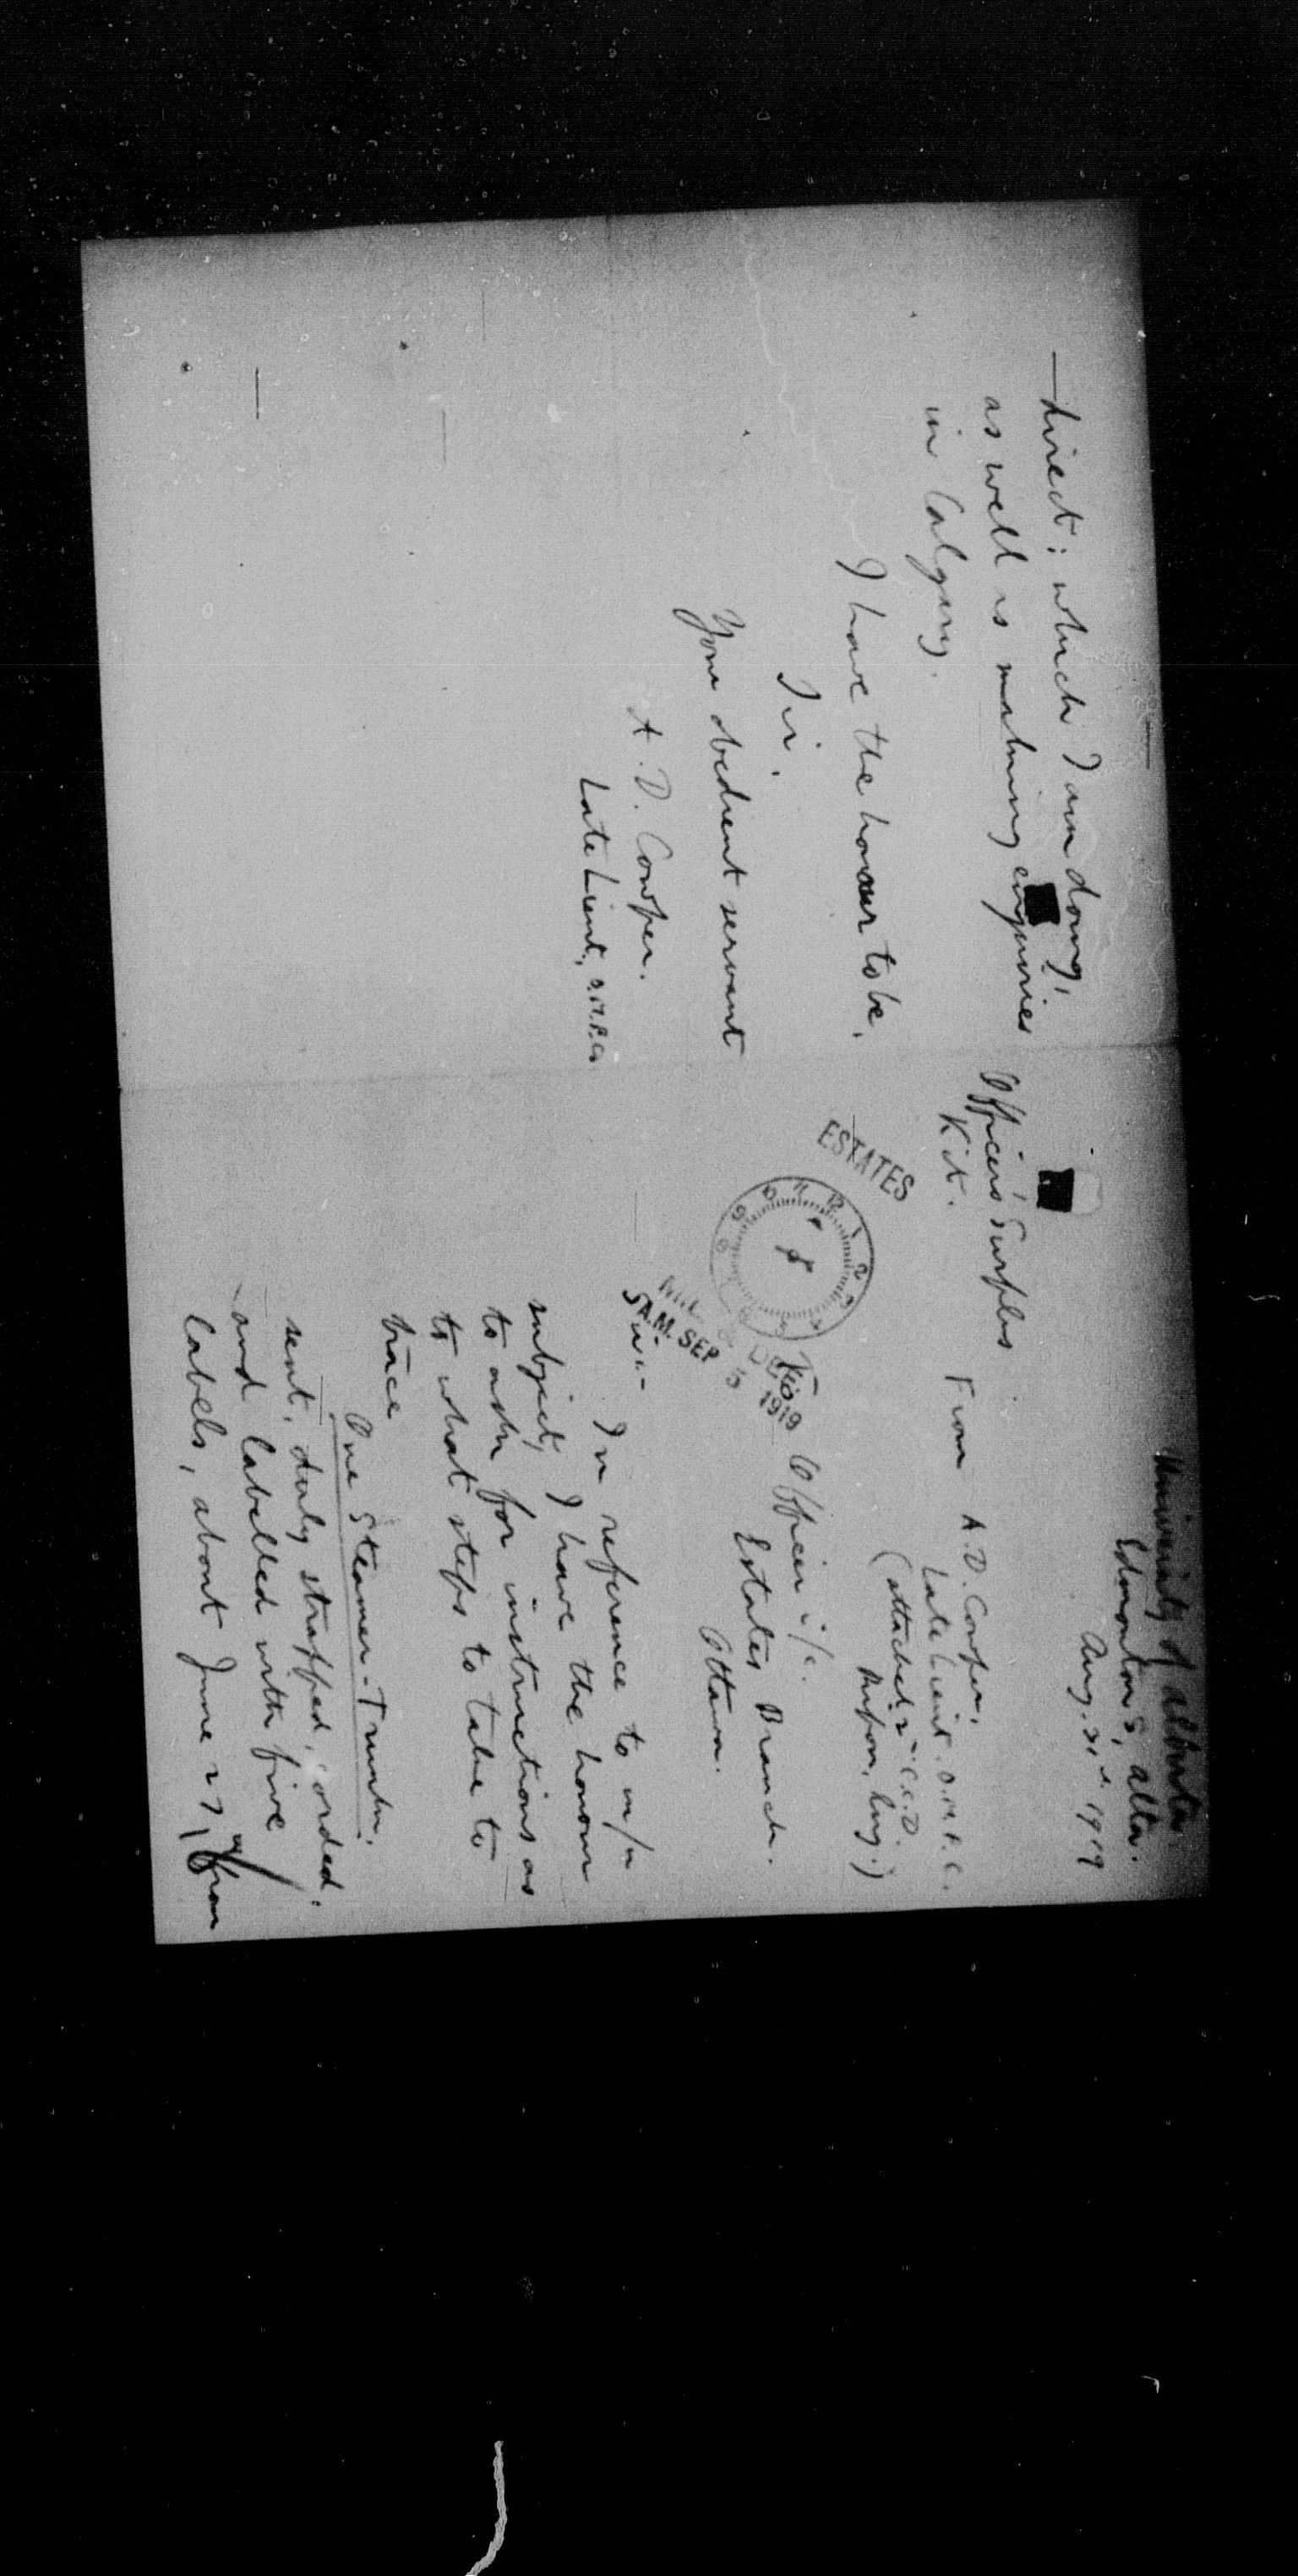 University of Alberta.
Edmonton S, Alta.
Aug. 31st. 1919
Officers' Surplus
Kit.
From A.D. Cowper,
Late Lieut. O.M.F.C.
(attached 2nd C.C.D.
Ripon, Eng.)
ESTATES
SEP 5 1919
To Officer i/c.
Estates Branch.
Ottawa.
Sir:-
In reference to m/n
subject, I have the honour
to ask for instructions as
to what steps to take to
trace
One Steamer-Trunk.
sent, duly strapped, corded,
and labelled with five
labels, about June 27, from
direct: which I am doing,
as well as making enquiries
in Calgary.
I have the honour to be,
Sir,
Your obedient servant
A. D. Cowper.
Late Lieut, O.M.F.C.